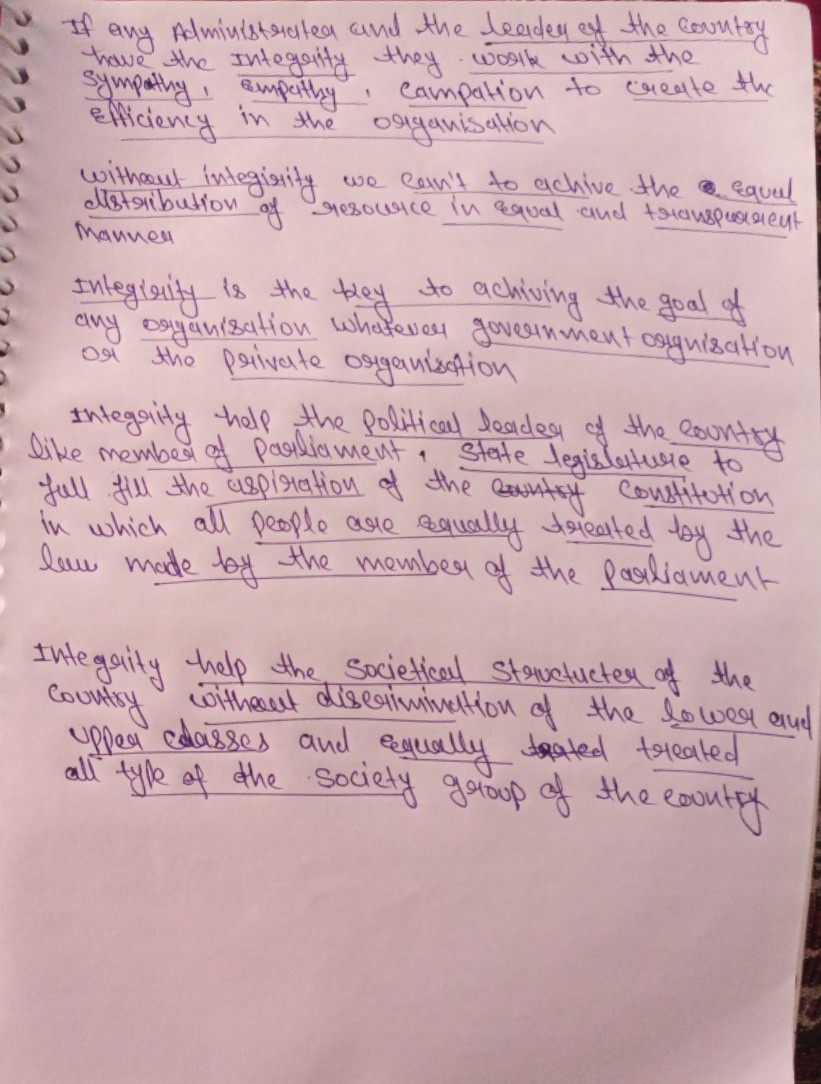 If any Administrater and the leader of the country
have the Integrity they work with the
sympathy, empathy, campation to create the
efficiency in the organisation
without integirity we can't to achive the equal
distribution of resource in equal and transparent
manner
Integirity is the key to achiving the goal of
any organisation whatever government orgnisation
or the private organisation
Integrity help the political leader of the country
like member of parliament, state legislature to
full fill the aspiration of the country constitution
in which all people are equally treated by the
law made by the member of the parliament
Integrity help the societical structucter of the
country without discrimination of the lower and
upper classes and equally trated treated
all type of the society group of the country